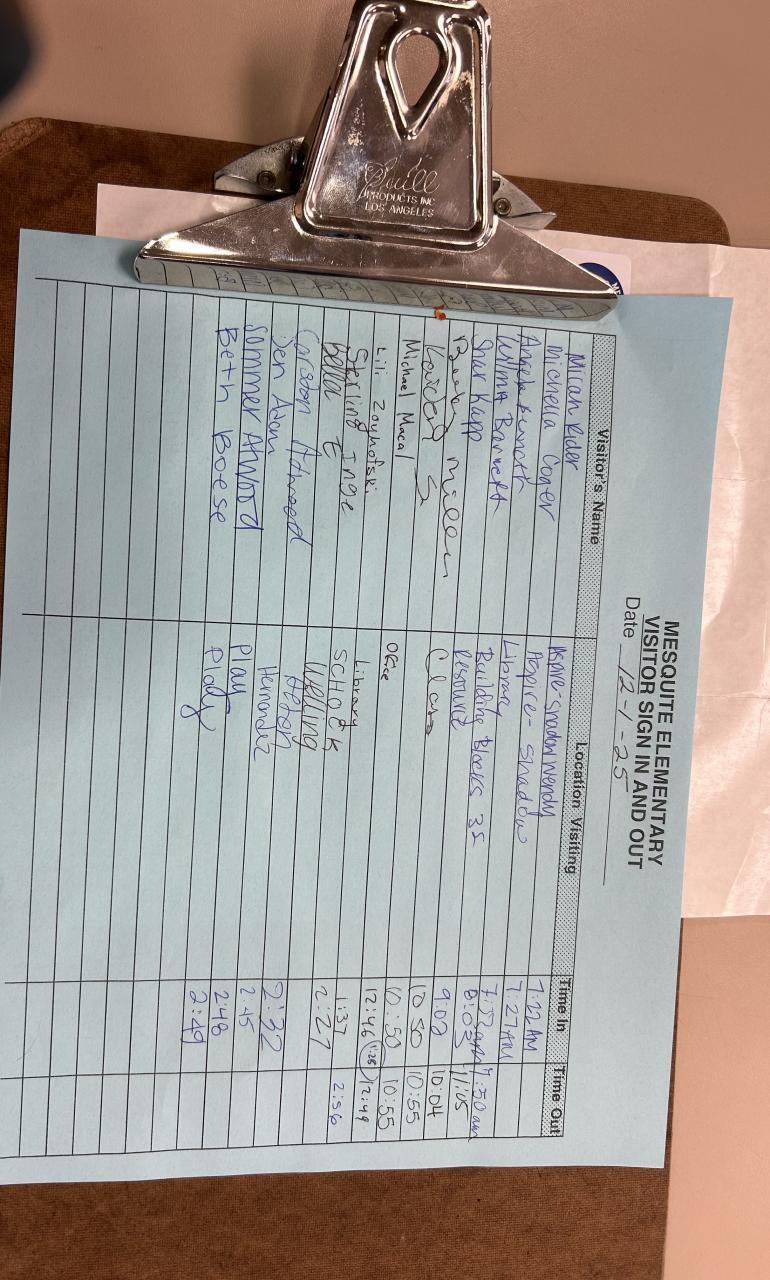 Quill
PRODUCTS INC
LOS ANGELES
MESQUITE ELEMENTARY
VISITOR SIGN IN AND OUT
Date 12-1-25
Visitor's Name Location Visiting Time In Time Out
Micah Rider Aspire-Shadow Wendy 7:22 AM
Michella Coner Aspire- Shadow 7:27AM
Angela Library 7:30am
Wilma Barnett Building Blocks 35 8:03 11:05
Shur Kapp Resource 9:02 10:04
Becky Miller Class 10:50 10:55
Kaiden S
Michael Macal Office 10:50 10:55
Lili Library 12:46 1:28 12:49
Sterling Inge SCHOCK 1:37 2:56
Bella E Welling 2:27
Carson Atwood
Jen Adam Hernandez 2:32
Sommer Atwood Play 2:45
Beth Boese Play 2:48
2:49